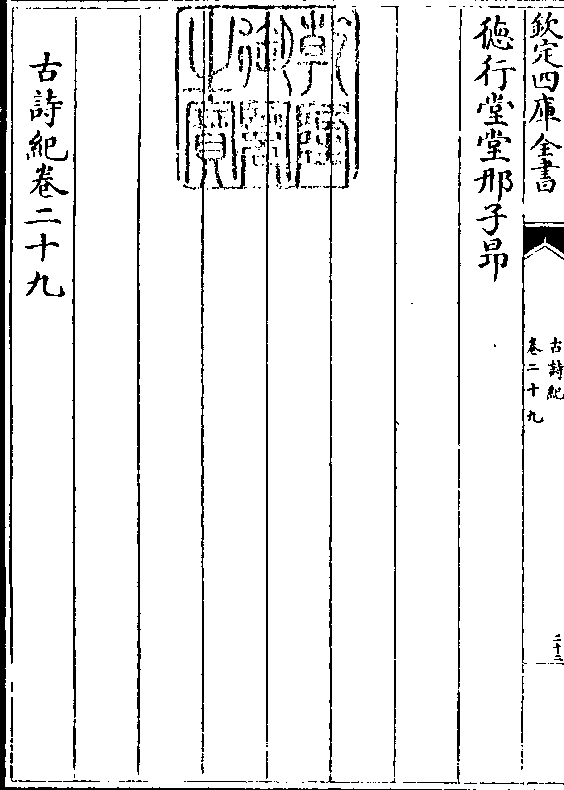 欽定四庫全書
古詩紀
卷二十九
二十二
徳行堂堂邢子昂
乾隆御覽之寶
古詩紀卷二十九